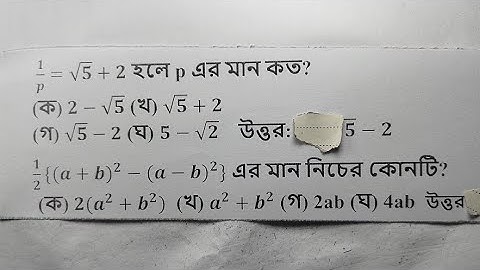 1/p = √5 + 2 হলে p এর মান কত?
(ক) 2 − √5 (খ) √5 + 2
(গ) √5 − 2 (ঘ) 5 − √2 উত্তর: √5 − 2
1/2 {(a + b)² − (a − b)²} এর মান নিচের কোনটি?
(ক) 2(a² + b²) (খ) a² + b² (গ) 2ab (ঘ) 4ab উত্তর